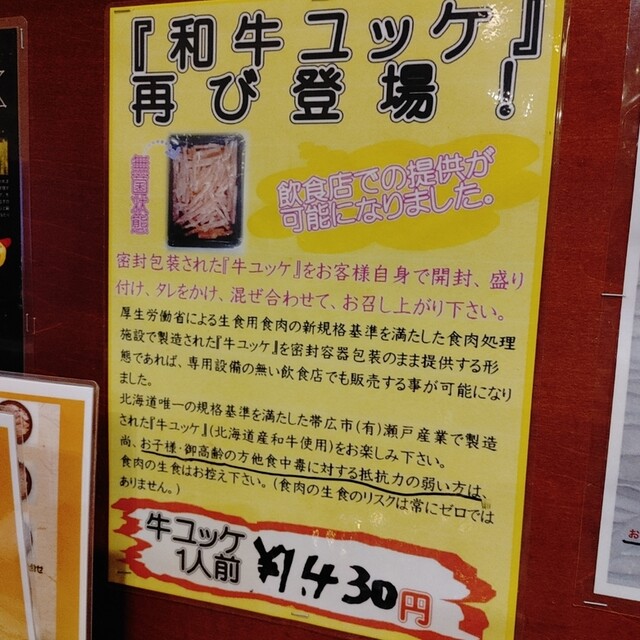 『和牛ユッケ』
再び登場！
無菌状態
飲食店での提供が
可能になりました。
密封包装された『牛ユッケ』をお客様自身で開封、盛り
付け、タレをかけ、混ぜ合わせて、お召し上がり下さい。
厚生労働省による生食用食肉の新規格基準を満たした食肉処理
施設で製造された『牛ユッケ』を密封容器包装のまま提供する形
態であれば、専用設備の無い飲食店でも販売する事が可能になり
ました。
北海道唯一の規格基準を満たした帯広市(有)瀬戸産業で製造
された『牛ユッケ』(北海道産和牛使用)をお楽しみ下さい。
尚、お子様・御高齢の方他食中毒に対する抵抗力の弱い方は、
食肉の生食はお控え下さい。(食肉の生食のリスクは常にゼロでは
ありません。)
牛ユッケ
1人前 ¥1,430円